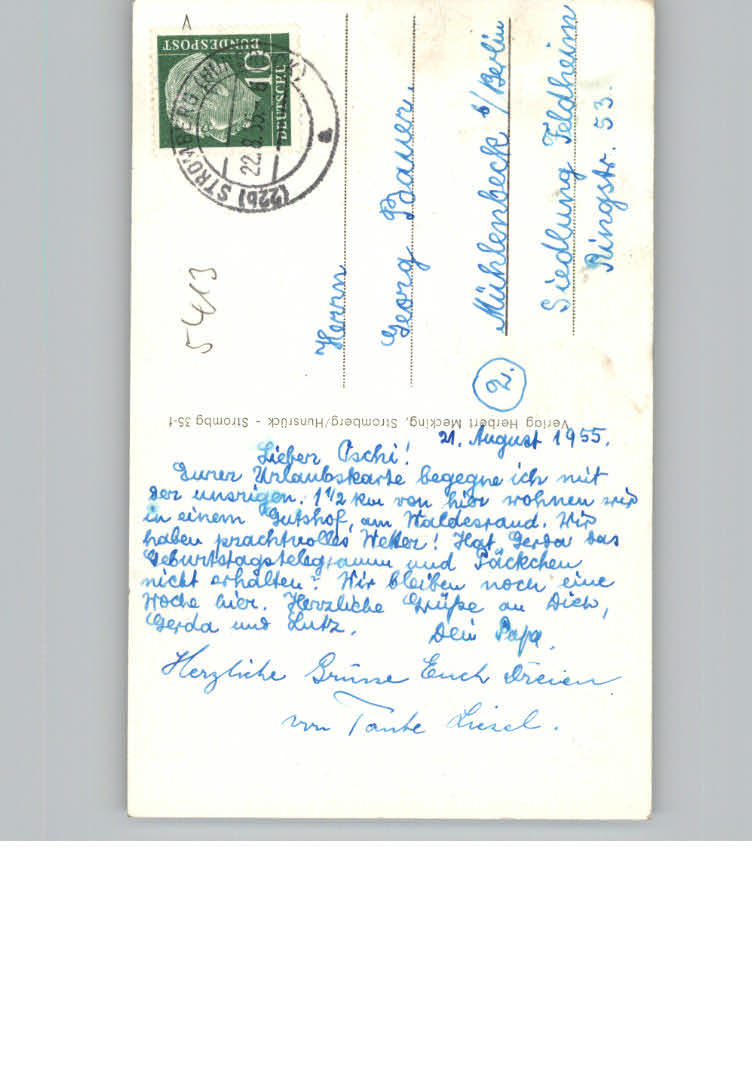 DEUTSCHE
BUNDESPOST
10
(22b) STROMBERG
22.8.55
a
5413
Herrn
Georg Bauer.
Mühlenbeck b/Berlin
Siedlung Feldheim
Ringstr. 53.
2.
Verlag Herbert Mecking, Stromberg/Hunsrück - Strombg 35-1
21. August 1955.
Lieber Oschi!
Eurer Urlaubskarte begegne ich mit
der unsrigen. 1 1/2 km von hier wohnen wir
in einem Gutshof, am Waldesrand. Wir
haben prachtvolles Wetter! Hat Gerda das
Geburtstagstelegramm und Päckchen
nicht erhalten? Wir bleiben noch eine
Woche hier. Herzliche Grüße an Dich,
Gerda und Lutz. Dein Papa.
Herzliche Grüsse Euch Dreien
von Tante Liesel.